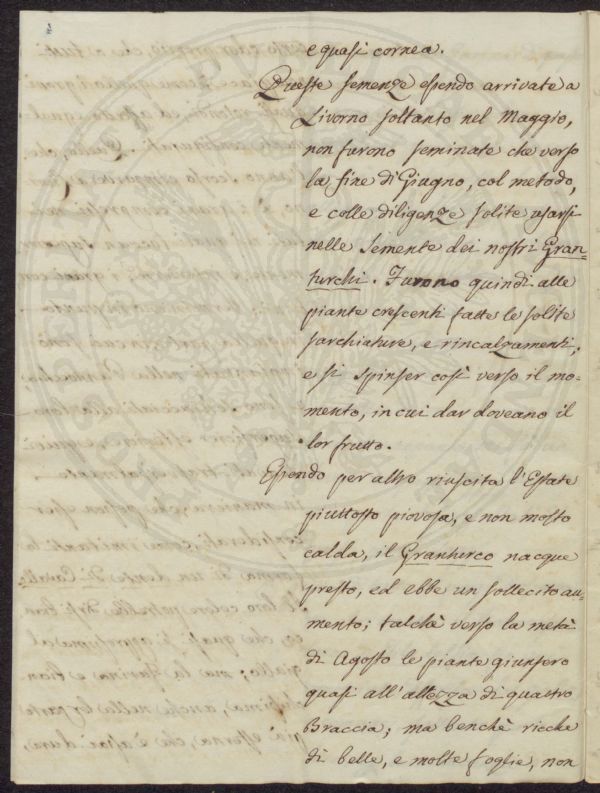 e quasi cornea.
Queste semenze essendo arrivate a
Livorno soltanto nel Maggio,
non furono seminate che verso
la fine di Giugno, col metodo,
e colle diligenze solite usarsi
nelle Semente dei nostri Gran-
turchi. Furono quindi alle
piante crescenti fatte le solite
sarchiature, e rincalzamenti;
e si spinser così verso il mo-
mento, in cui dar doveano il
lor frutto.
Essendo per altro riuscita l'Estate
piuttosto piovosa, e non molto
calda, il Granturco nacque
presto, ed ebbe un sollecito au-
mento; talchè verso la metà
di Agosto le piante giunsero
quasi all'altezza di quattro
Braccia; ma benchè ricche
di belle, e molte foglie, non